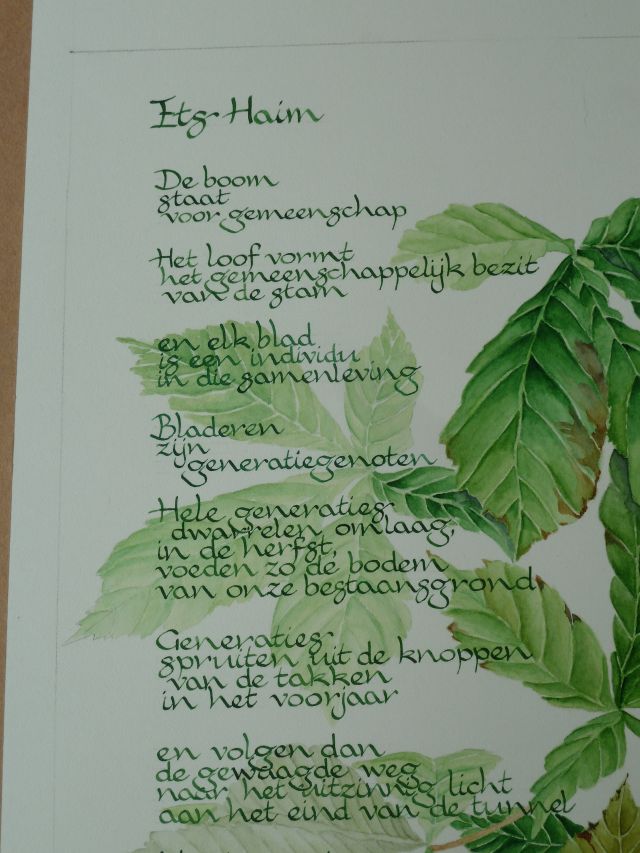 Etz Haim
De boom
staat
voor gemeenschap
Het loof vormt
het gemeenschappelijk bezit
van de stam
en elk blad
is een individu
in die samenleving
Bladeren
zijn
generatiegenoten
Hele generaties
dwarrelen omlaag,
in de herfst,
voeden zo de bodem
van onze bestaansgrond
Generaties
spruiten uit de knoppen
van de takken
in het voorjaar
en volgen dan
de gewaagde weg
naar het uitzinnig licht
aan het eind van de tunnel